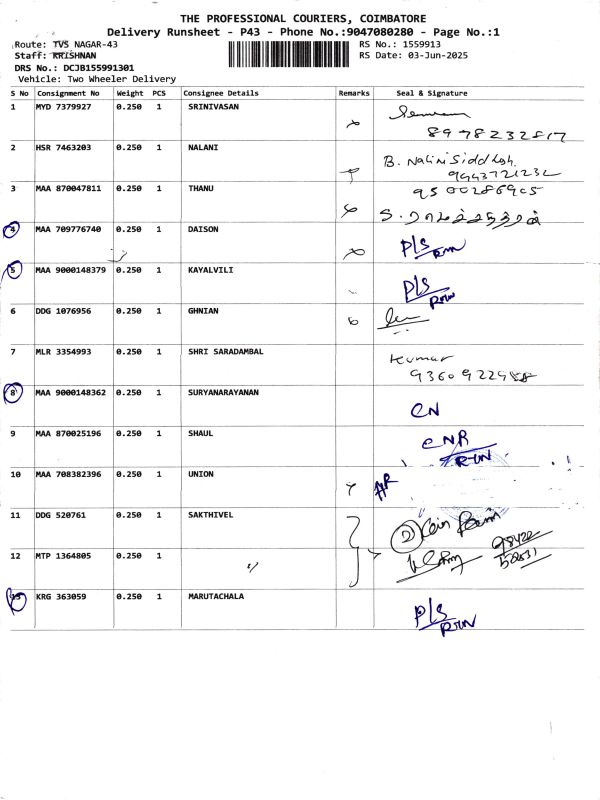 THE PROFESSIONAL COURIERS, COIMBATORE
Delivery Runsheet - P43 - Phone No.:9047080280 - Page No.:1
Route: TVS NAGAR-43 RS No.: 1559913
Staff: KRISHNAN RS Date: 03-Jun-2025
DRS No.: DCJB155991301
Vehicle: Two Wheeler Delivery
S No Consignment No Weight PCS Consignee Details Remarks Seal & Signature
1 MYD 7379927 0.250 1 SRINIVASAN
8978232817
2 HSR 7463203 0.250 1 NALANI B. Nalini Siddhesh
9993721232
3 MAA 870047811 0.250 1 THANU 9500286905
4 MAA 709776740 0.250 1 DAISON P/S
RTUN
5 MAA 9000148379 0.250 1 KAYALVILI P/S
RTUN
6 DDG 1076956 0.250 1 GHNIAN
7 MLR 3354993 0.250 1 SHRI SARADAMBAL Kumar
9360922988
8 MAA 9000148362 0.250 1 SURYANARAYANAN CN
9 MAA 870025196 0.250 1 SHAUL CNR
RTUN
10 MAA 708382396 0.250 1 UNION
11 DDG 520761 0.250 1 SAKTHIVEL
12 MTP 1364805 0.250 1 〃
13 KRG 363059 0.250 1 MARUTACHALA P/S
RTUN